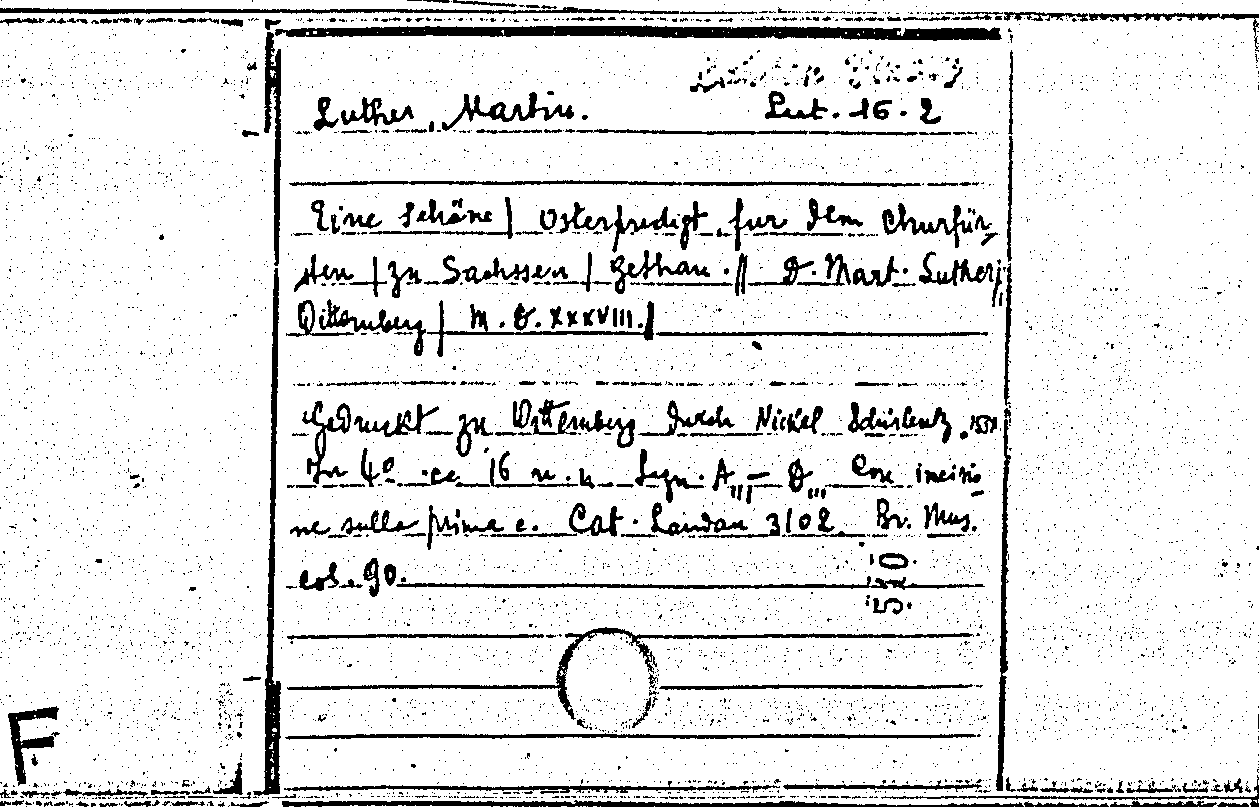 Luther, Martin.
Lut. 16. 2
Eine Schöne | Osterpredigt, fur dem Churfür-
sten | zu Sachssen | Gethan. || D. Mart. Luther.||
Wittemberg | M.D.XXXVIII.|
Gedruckt zu Wittemberg durch Nickel Schirlentz.
In 4° cc. 16 n. n. Segn. A - D Con incisio-
ne sulla prima c. Cat. Landau 3102 Br. Mus.
col. 90.
F